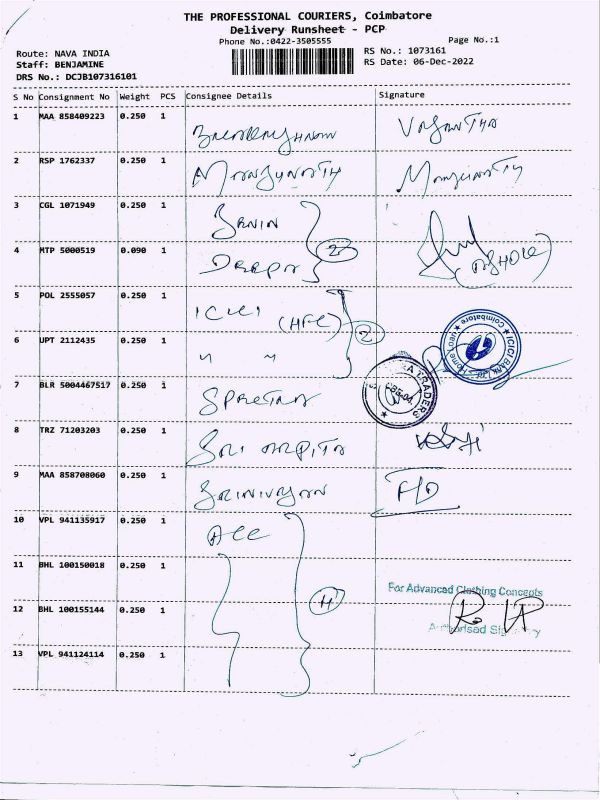 THE PROFESSIONAL COURIERS, Coimbatore
Delivery Runsheet - PCP
Phone No.:0422-3505555
Page No.:1
Route: NAVA INDIA
RS No.: 1073161
Staff: BENJAMINE
RS Date: 06-Dec-2022
DRS No.: DCJB107316101
S No Consignment No Weight PCS Consignee Details Signature
1 MAA 858409223 0.250 1
2 RSP 1762337 0.250 1 Manjunath Manjunath
3 CGL 1071949 0.250 1
4 MTP 5000519 0.090 1 2
5 POL 2555057 0.250 1 ICICI (HFC)
6 UPT 2112435 0.250 1 " " 2
Coimbatore ICICI BANK
7 BLR 5004467517 0.250 1
TRADERS
8 TRZ 71203203 0.250 1 Sri Arpita
9 MAA 858708060 0.250 1
10 VPL 941135917 0.250 1 ACC
11 BHL 100150018 0.250 1
For Advanced Clothing Concepts
12 BHL 100155144 0.250 1
Authorised Signatory
13 VPL 941124114 0.250 1